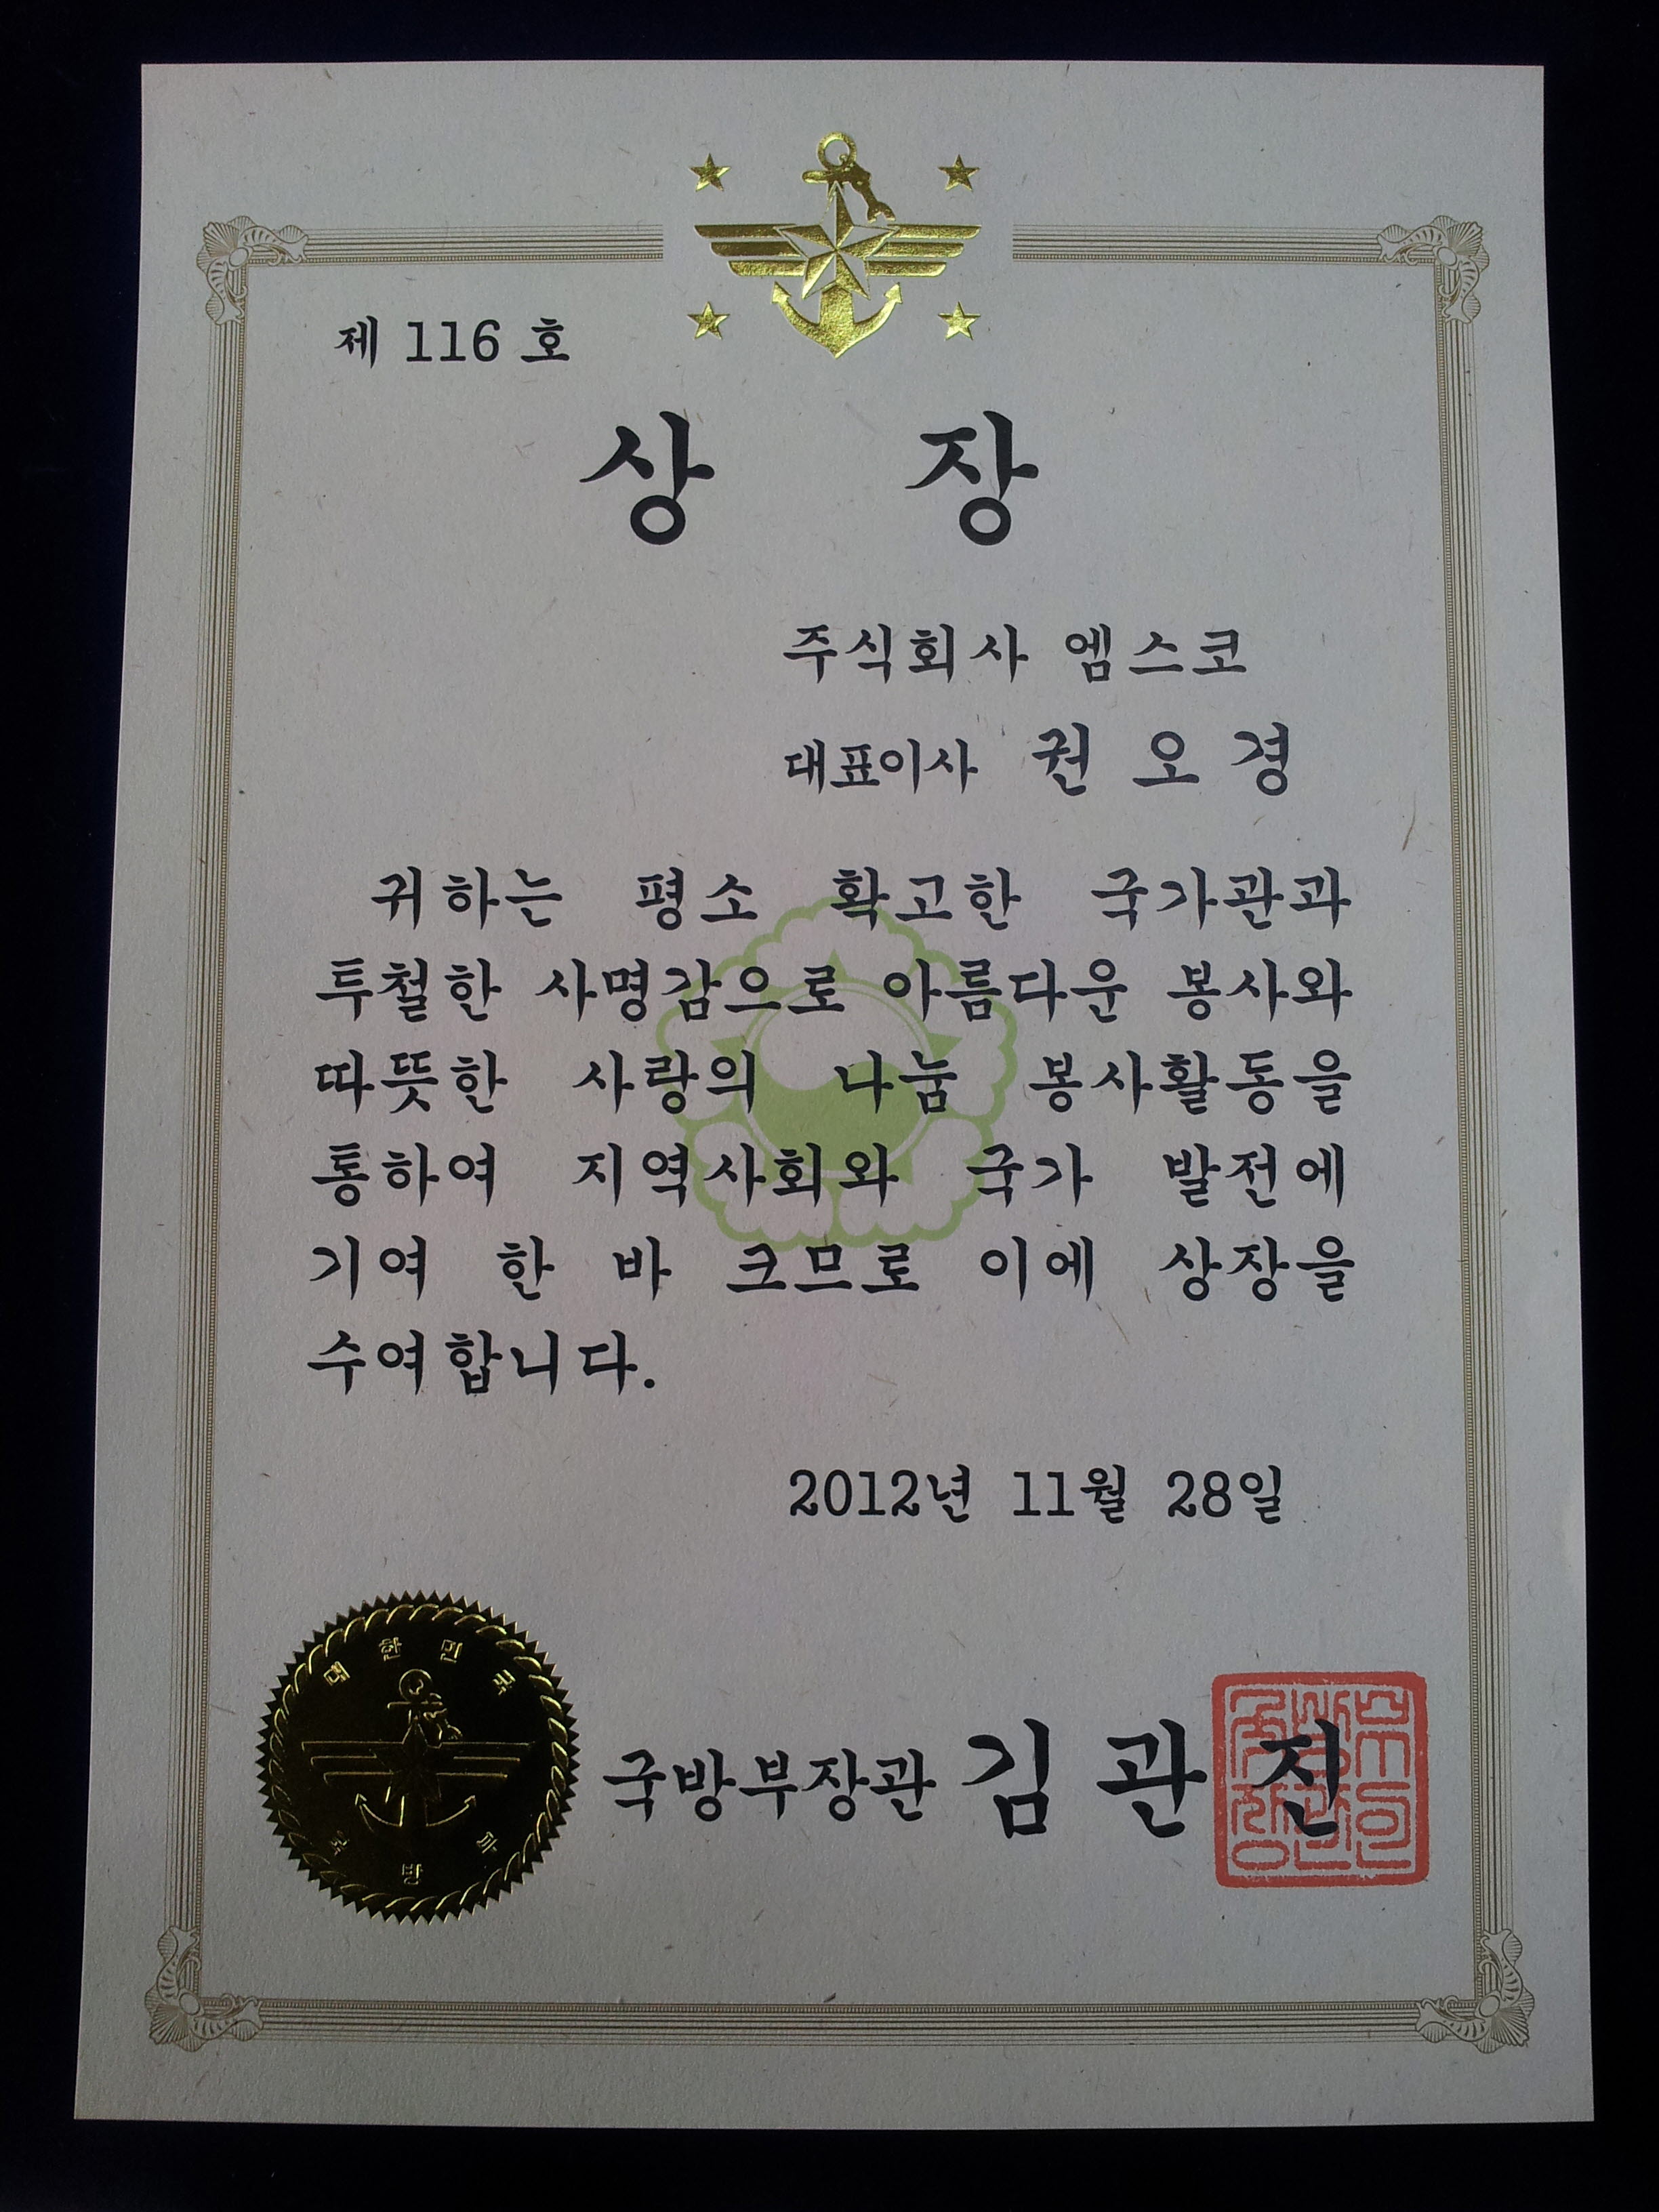 제 116 호
상 장
주식회사 엠스코
대표이사 권 오 경
귀하는 평소 확고한 국가관과
투철한 사명감으로 아름다운 봉사와
따뜻한 사랑의 나눔 봉사활동을
통하여 지역사회와 국가 발전에
기여 한 바 크므로 이에 상장을
수여합니다.
2012년 11월 28일
대한민국
국방부
국방부장관 김 관 진